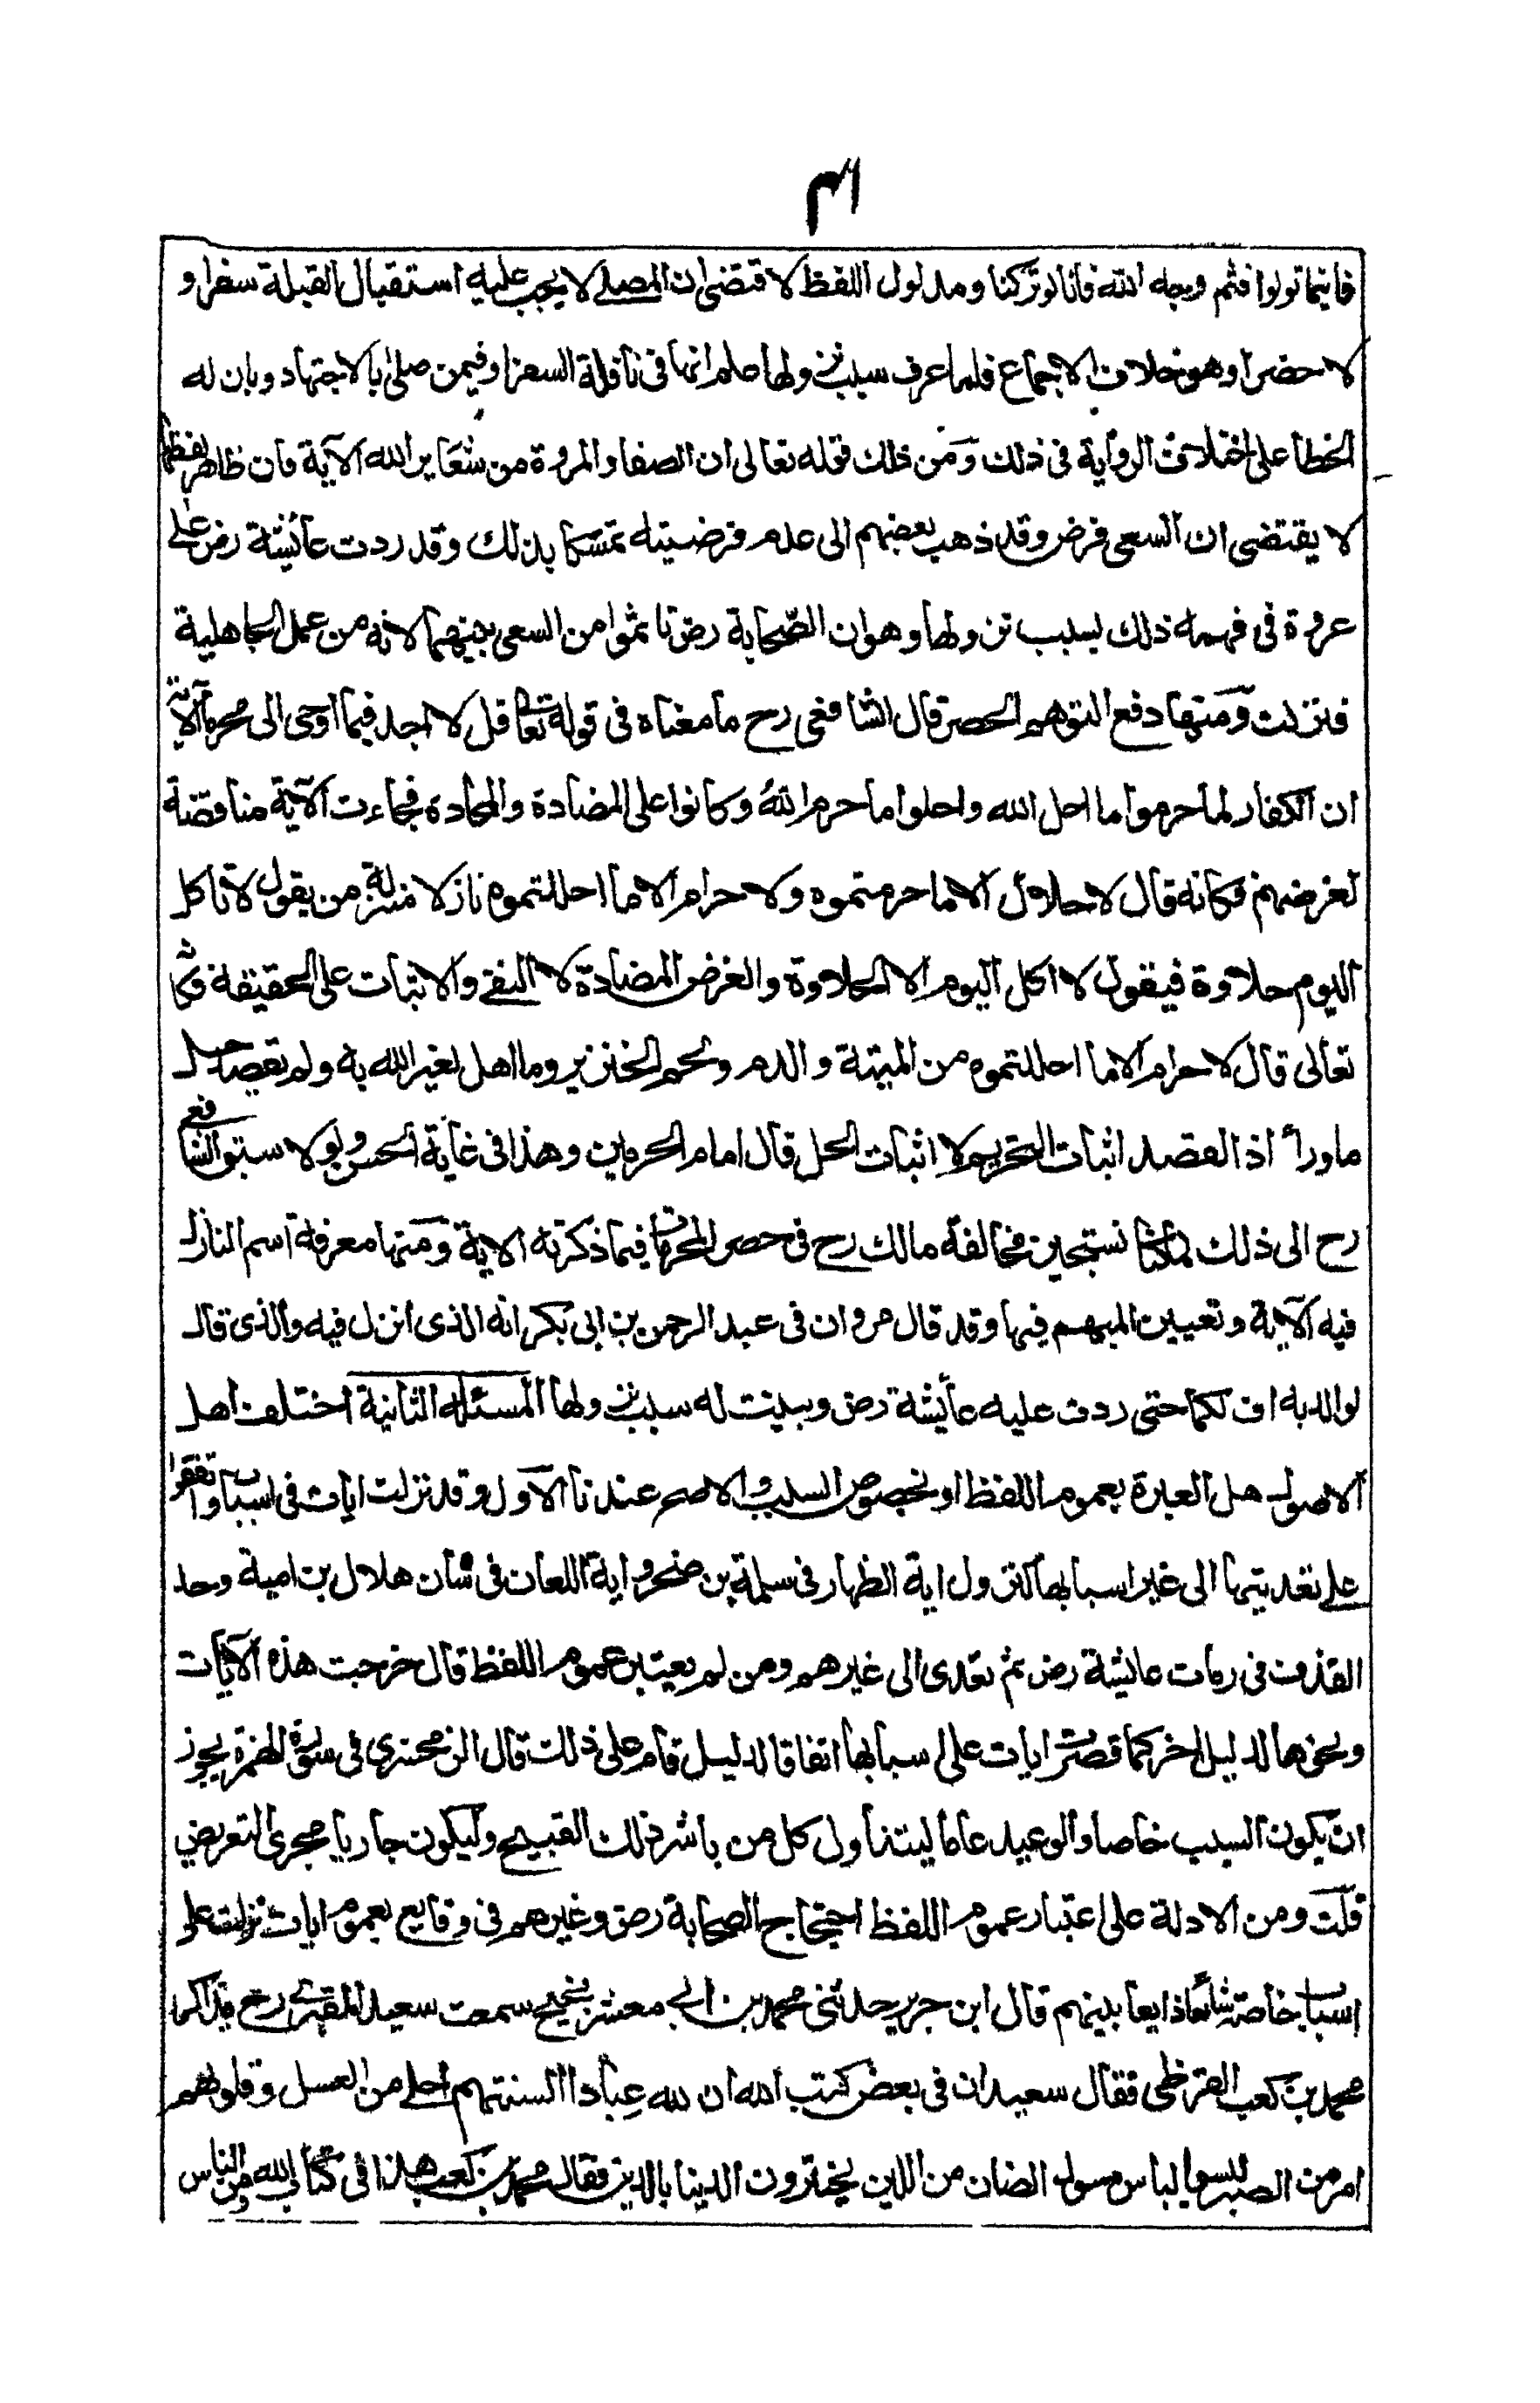 ٣١
فاينما تولوا فثم وجه الله فانا لو تركنا ومدلول اللفظ لاقتضى ان المصلى لا يجب عليه استقبال القبلة سفرا و
لا حضرا وهو خلاف الاجماع فلما عرف سبب نزولها علم انها فى نافلة السفر او فيمن صلى بالاجتهاد وبان له
الخطا على اختلاف الرواية فى ذلك ومن ذلك قوله تعالى ان الصفا والمروة من شعاير الله الآية فان ظاهر لفظها
لا يقتضى ان السعى فرض وقد ذهب بعضهم الى عدم فرضيته تمسكا بذلك وقد ردت عائشة رض على
عروة فى فهمه ذلك بسبب نزولها وهو ان الصحابة رض تاثموا من السعى بينهما لانه من عمل الجاهلية
فنزلت ومنها دفع التوهم الحصر قال الشافعى رح ما معناه فى قوله تعا قل لا اجد فيما اوحى الى محرما الآية
ان الكفار لما حرموا ما احل الله واحلوا ما حرم الله وكانوا على المضادة والمحادة فجاءت الآية مناقضة
لغرضهم فكانه قال لا حلال الا ما حرمتموه ولا حرام الا ما احللتموه نازلا منزلة من يقول لا تاكل
اليوم حلاوة فيقول لا اكل اليوم الا الحلاوة والغرض المضادة لا النفى والاثبات على الحقيقة فكا
تعالى قال لا حرام الا ما احللتموه من الميتة والدم ولحم الخنزير وما اهل لغير الله به ولم يقصد حل
ماوراء اذا القصد اثبات التحريم لا اثبات الحل قال امام الحرمين وهذا فى غاية الحسن ولولا سبق الشافعى
رح الى ذلك لما كنا نستجين مخالفة مالك رح فى حصر المحرمات فيما ذكرته الاية ومنها معرفة اسم النازل
فيه الآية وتعيين المبهم فيها وقد قال مروان فى عبد الرحمن بن ابى بكر انه الذى انزل فيه والذى قال
لوالديه اف لكما حتى ردت عليه عائشة رض وبينت له سبب نزولها المسئلة الثانية اختلف اهل
الاصول هل العبرة بعموم اللفظ او بخصوص السبب والاصح عندنا الاول وقد نزلت ايات فى اسباب واتفقوا
على تعديتها الى غير اسبابها كنزول اية الظهار فى سلمة بن صخر واية اللعان فى شان هلال بن امية وحد
القذف فى رمات عائشة رض ثم تعدى الى غيرهم ومن لم يعتبر عموم اللفظ قال خرجت هذه الآيات
ونحوها لدليل اخر كما قصرت ايات على اسبابها اتفاقا لدليل قام على ذلك قال الزمخشرى فى سورة الهمزة يجوز
ان يكون السبب خاصا والوعيد عاما ليتناول كل من باشر ذلك القبيح وليكون جاريا مجرى التعريض
قلت ومن الادلة على اعتبار عموم اللفظ احتجاج الصحابة رض وغيرهم فى وقايع بعموم ايات نزلت على
اسباب خاصة شائعا ذايعا بينهم قال ابن جرير حدثنى محمد بن ابى معشر نجيح سمعت سعيد المقبرى رح يذاكر
محمد بن كعب القرظى فقال سعيد ان فى بعض كتب الله ان لله عبادا السنتهم احلى من العسل وقلوبهم
امر من الصبر لبسوا لباس مسوك الضان من اللين يختزون الدنيا بالدين فقال محمد بن كعب هذا فى كتاب الله ومن الناس